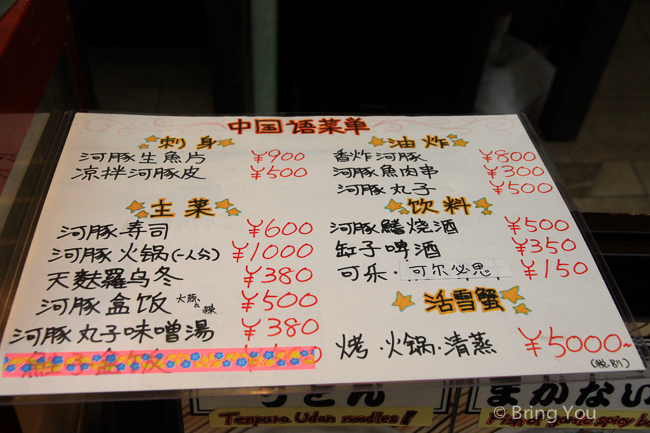 中国语菜单
刺身
河豚生魚片 ¥900
凉拌河豚皮 ¥500
主菜
河豚寿司 ¥600
河豚火锅(一人分) ¥1000
天麩羅乌冬 ¥380
河豚盒饭 ¥500
河豚丸子味噌湯 ¥380
油炸
香炸河豚 ¥800
河豚魚肉串 ¥300
河豚丸子 ¥500
饮料
河豚鰭烧酒 ¥500
缸子啤酒 ¥350
可乐·可尔必思 ¥150
活雪蟹
烤·火锅·清蒸 ¥5000~
(税別)
うどん
Tempura Udon noodles!
まかない
© Bring You